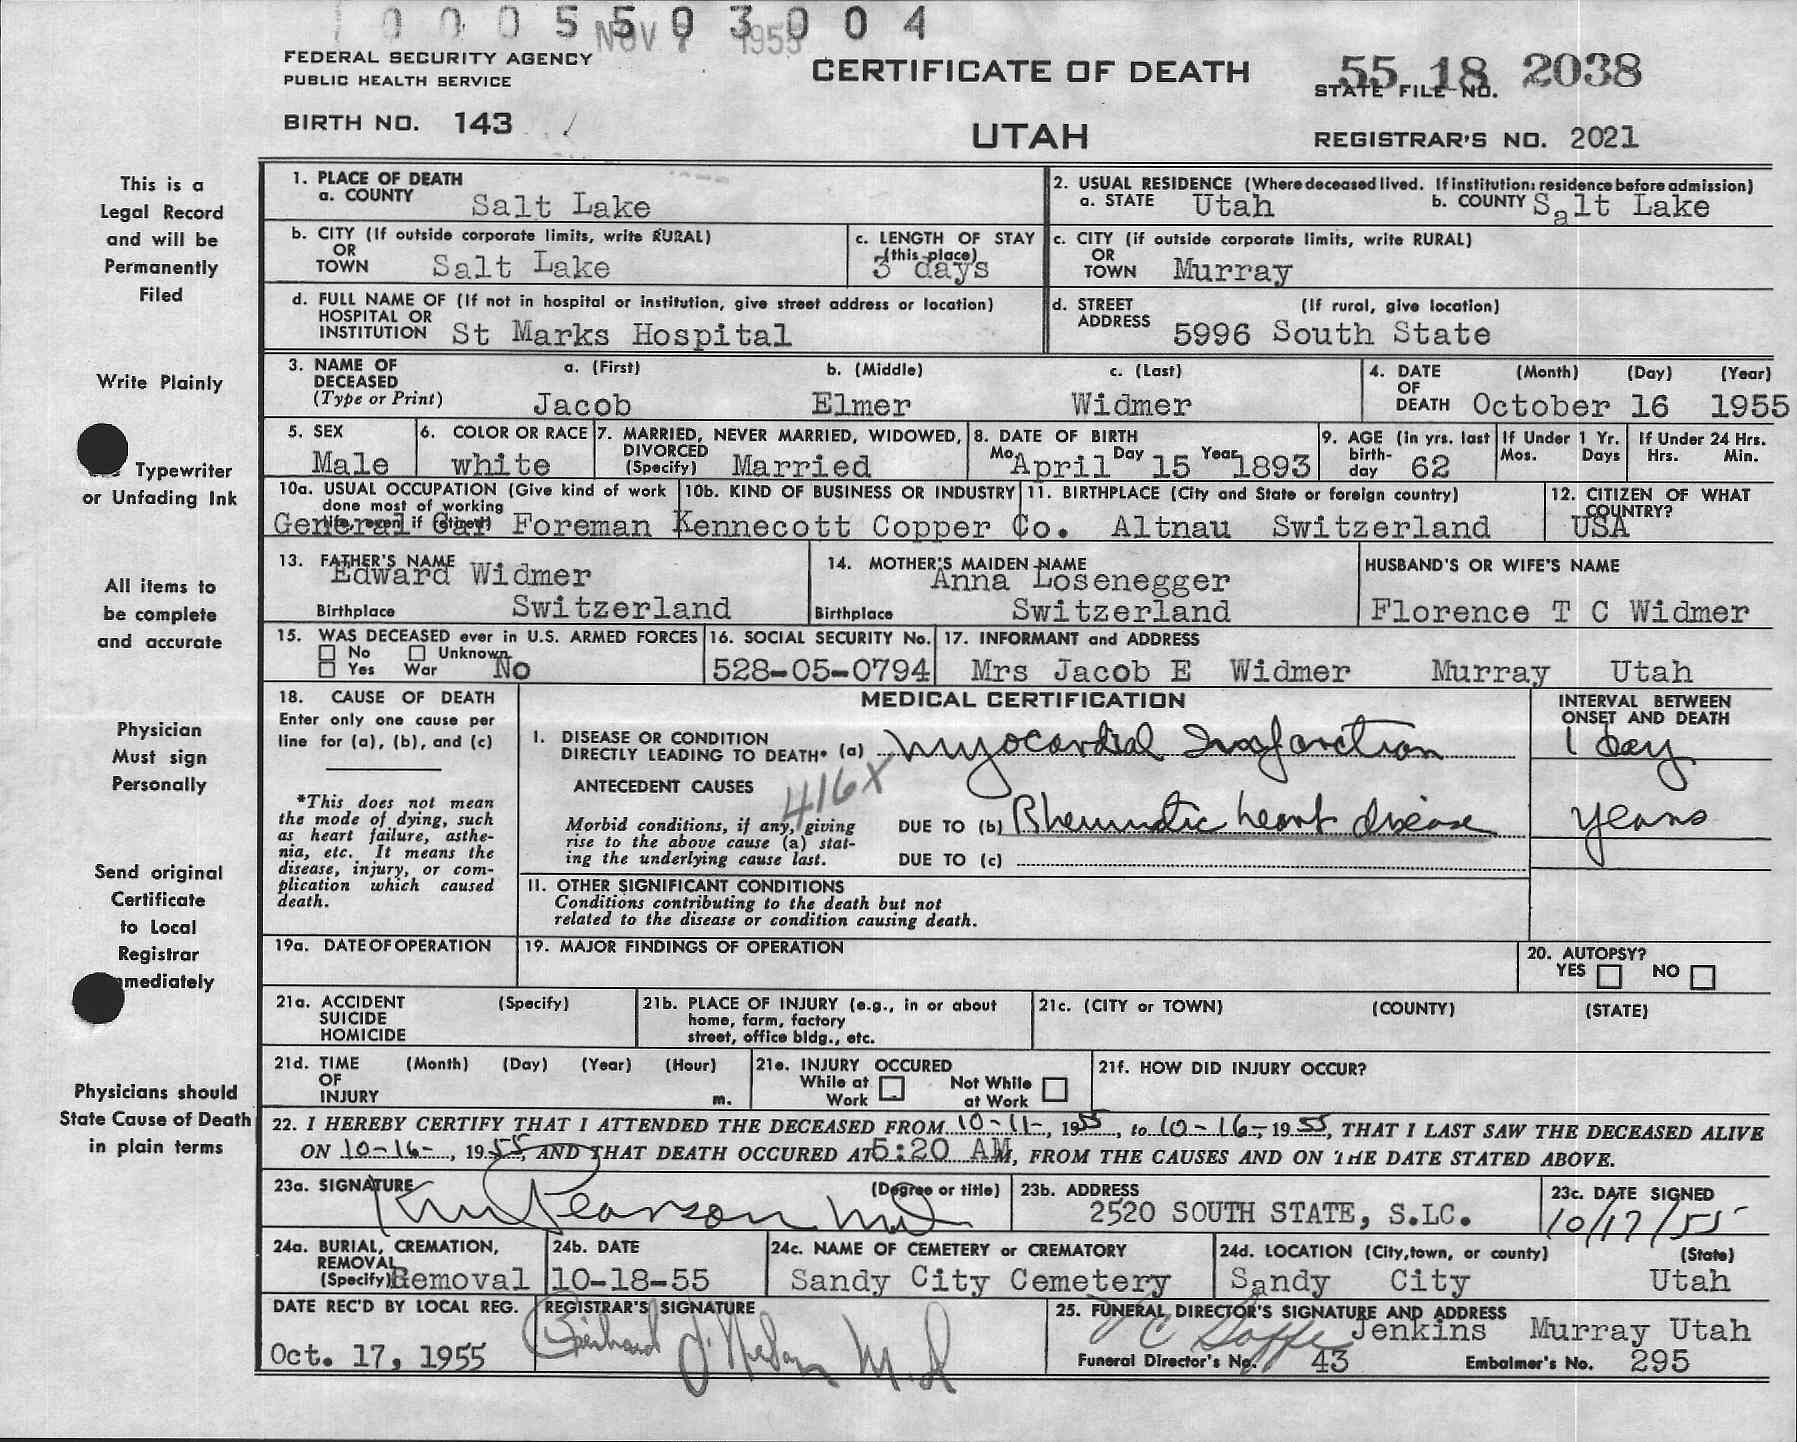 0005503004
NOV 7 1955
FEDERAL SECURITY AGENCY
PUBLIC HEALTH SERVICE
BIRTH NO. 143
CERTIFICATE OF DEATH
UTAH
55 18 2038
STATE FILE NO.
REGISTRAR'S NO. 2021
This is a
Legal Record
and will be
Permanently
Filed
Write Plainly
Typewriter
or Unfading Ink
All items to
be complete
and accurate
Physician
Must sign
Personally
Send original
Certificate
to Local
Registrar
mmediately
Physicians should
State Cause of Death
in plain terms
1. PLACE OF DEATH
a. COUNTY Salt Lake
2. USUAL RESIDENCE (Where deceased lived. If institution: residence before admission)
a. STATE Utah b. COUNTY Salt Lake
b. CITY (If outside corporate limits, write RURAL)
OR
TOWN Salt Lake
c. LENGTH OF STAY
(this place)
3 days
c. CITY (if outside corporate limits, write RURAL)
OR
TOWN Murray
d. FULL NAME OF (If not in hospital or institution, give street address or location)
HOSPITAL OR
INSTITUTION St Marks Hospital
d. STREET (If rural, give location)
ADDRESS 5996 South State
3. NAME OF a. (First) b. (Middle) c. (Last)
DECEASED
(Type or Print) Jacob Elmer Widmer
4. DATE (Month) (Day) (Year)
OF
DEATH October 16 1955
5. SEX
Male
6. COLOR OR RACE
white
7. MARRIED, NEVER MARRIED, WIDOWED,
DIVORCED
(Specify) Married
8. DATE OF BIRTH
Mo. April Day 15 Year 1893
9. AGE (in yrs. last
birth-
day 62
If Under 1 Yr.
Mos. Days
If Under 24 Hrs.
Hrs. Min.
10a. USUAL OCCUPATION (Give kind of work
done most of working
life, even if retired)
General Car Foreman
10b. KIND OF BUSINESS OR INDUSTRY
Kennecott Copper Co.
11. BIRTHPLACE (City and State or foreign country)
Altnau Switzerland
12. CITIZEN OF WHAT
COUNTRY?
USA
13. FATHER'S NAME
Edward Widmer
Birthplace Switzerland
14. MOTHER'S MAIDEN NAME
Anna Losenegger
Birthplace Switzerland
HUSBAND'S OR WIFE'S NAME
Florence T C Widmer
15. WAS DECEASED ever in U.S. ARMED FORCES
No Unknown
Yes War No
16. SOCIAL SECURITY No.
528-05-0794
17. INFORMANT and ADDRESS
Mrs Jacob E Widmer Murray Utah
18. CAUSE OF DEATH
Enter only one cause per
line for (a), (b), and (c)
*This does not mean
the mode of dying, such
as heart failure, asthe-
nia, etc. It means the
disease, injury, or com-
plication which caused
death.
MEDICAL CERTIFICATION
INTERVAL BETWEEN
ONSET AND DEATH
I. DISEASE OR CONDITION
DIRECTLY LEADING TO DEATH* (a) Myocardial Infarction 1 day
ANTECEDENT CAUSES
416X
Morbid conditions, if any, giving
rise to the above cause (a) stat-
ing the underlying cause last.
DUE TO (b) Rheumatic heart disease years
DUE TO (c)
II. OTHER SIGNIFICANT CONDITIONS
Conditions contributing to the death but not
related to the disease or condition causing death.
19a. DATE OF OPERATION
19. MAJOR FINDINGS OF OPERATION
20. AUTOPSY?
YES NO
21a. ACCIDENT (Specify)
SUICIDE
HOMICIDE
21b. PLACE OF INJURY (e.g., in or about
home, farm, factory
street, office bldg., etc.
21c. (CITY or TOWN) (COUNTY) (STATE)
21d. TIME (Month) (Day) (Year) (Hour)
OF
INJURY m.
21e. INJURY OCCURED
While at Not While
Work at Work
21f. HOW DID INJURY OCCUR?
22. I HEREBY CERTIFY THAT I ATTENDED THE DECEASED FROM 10-11-, 1955, to 10-16-, 1955, THAT I LAST SAW THE DECEASED ALIVE
ON 10-16-, 1955, AND THAT DEATH OCCURED AT 5:20 AM, FROM THE CAUSES AND ON THE DATE STATED ABOVE.
23a. SIGNATURE (Degree or title)
Pearson M.D.
23b. ADDRESS
2520 SOUTH STATE, S.LC.
23c. DATE SIGNED
10/17/55
24a. BURIAL, CREMATION,
REMOVAL
(Specify) Removal
24b. DATE
10-18-55
24c. NAME OF CEMETERY or CREMATORY
Sandy City Cemetery
24d. LOCATION (City, town, or county) (State)
Sandy City Utah
DATE REC'D BY LOCAL REG.
Oct. 17, 1955
REGISTRAR'S SIGNATURE
M.D.
25. FUNERAL DIRECTOR'S SIGNATURE AND ADDRESS
Jenkins Murray Utah
Funeral Director's No. 43 Embalmer's No. 295